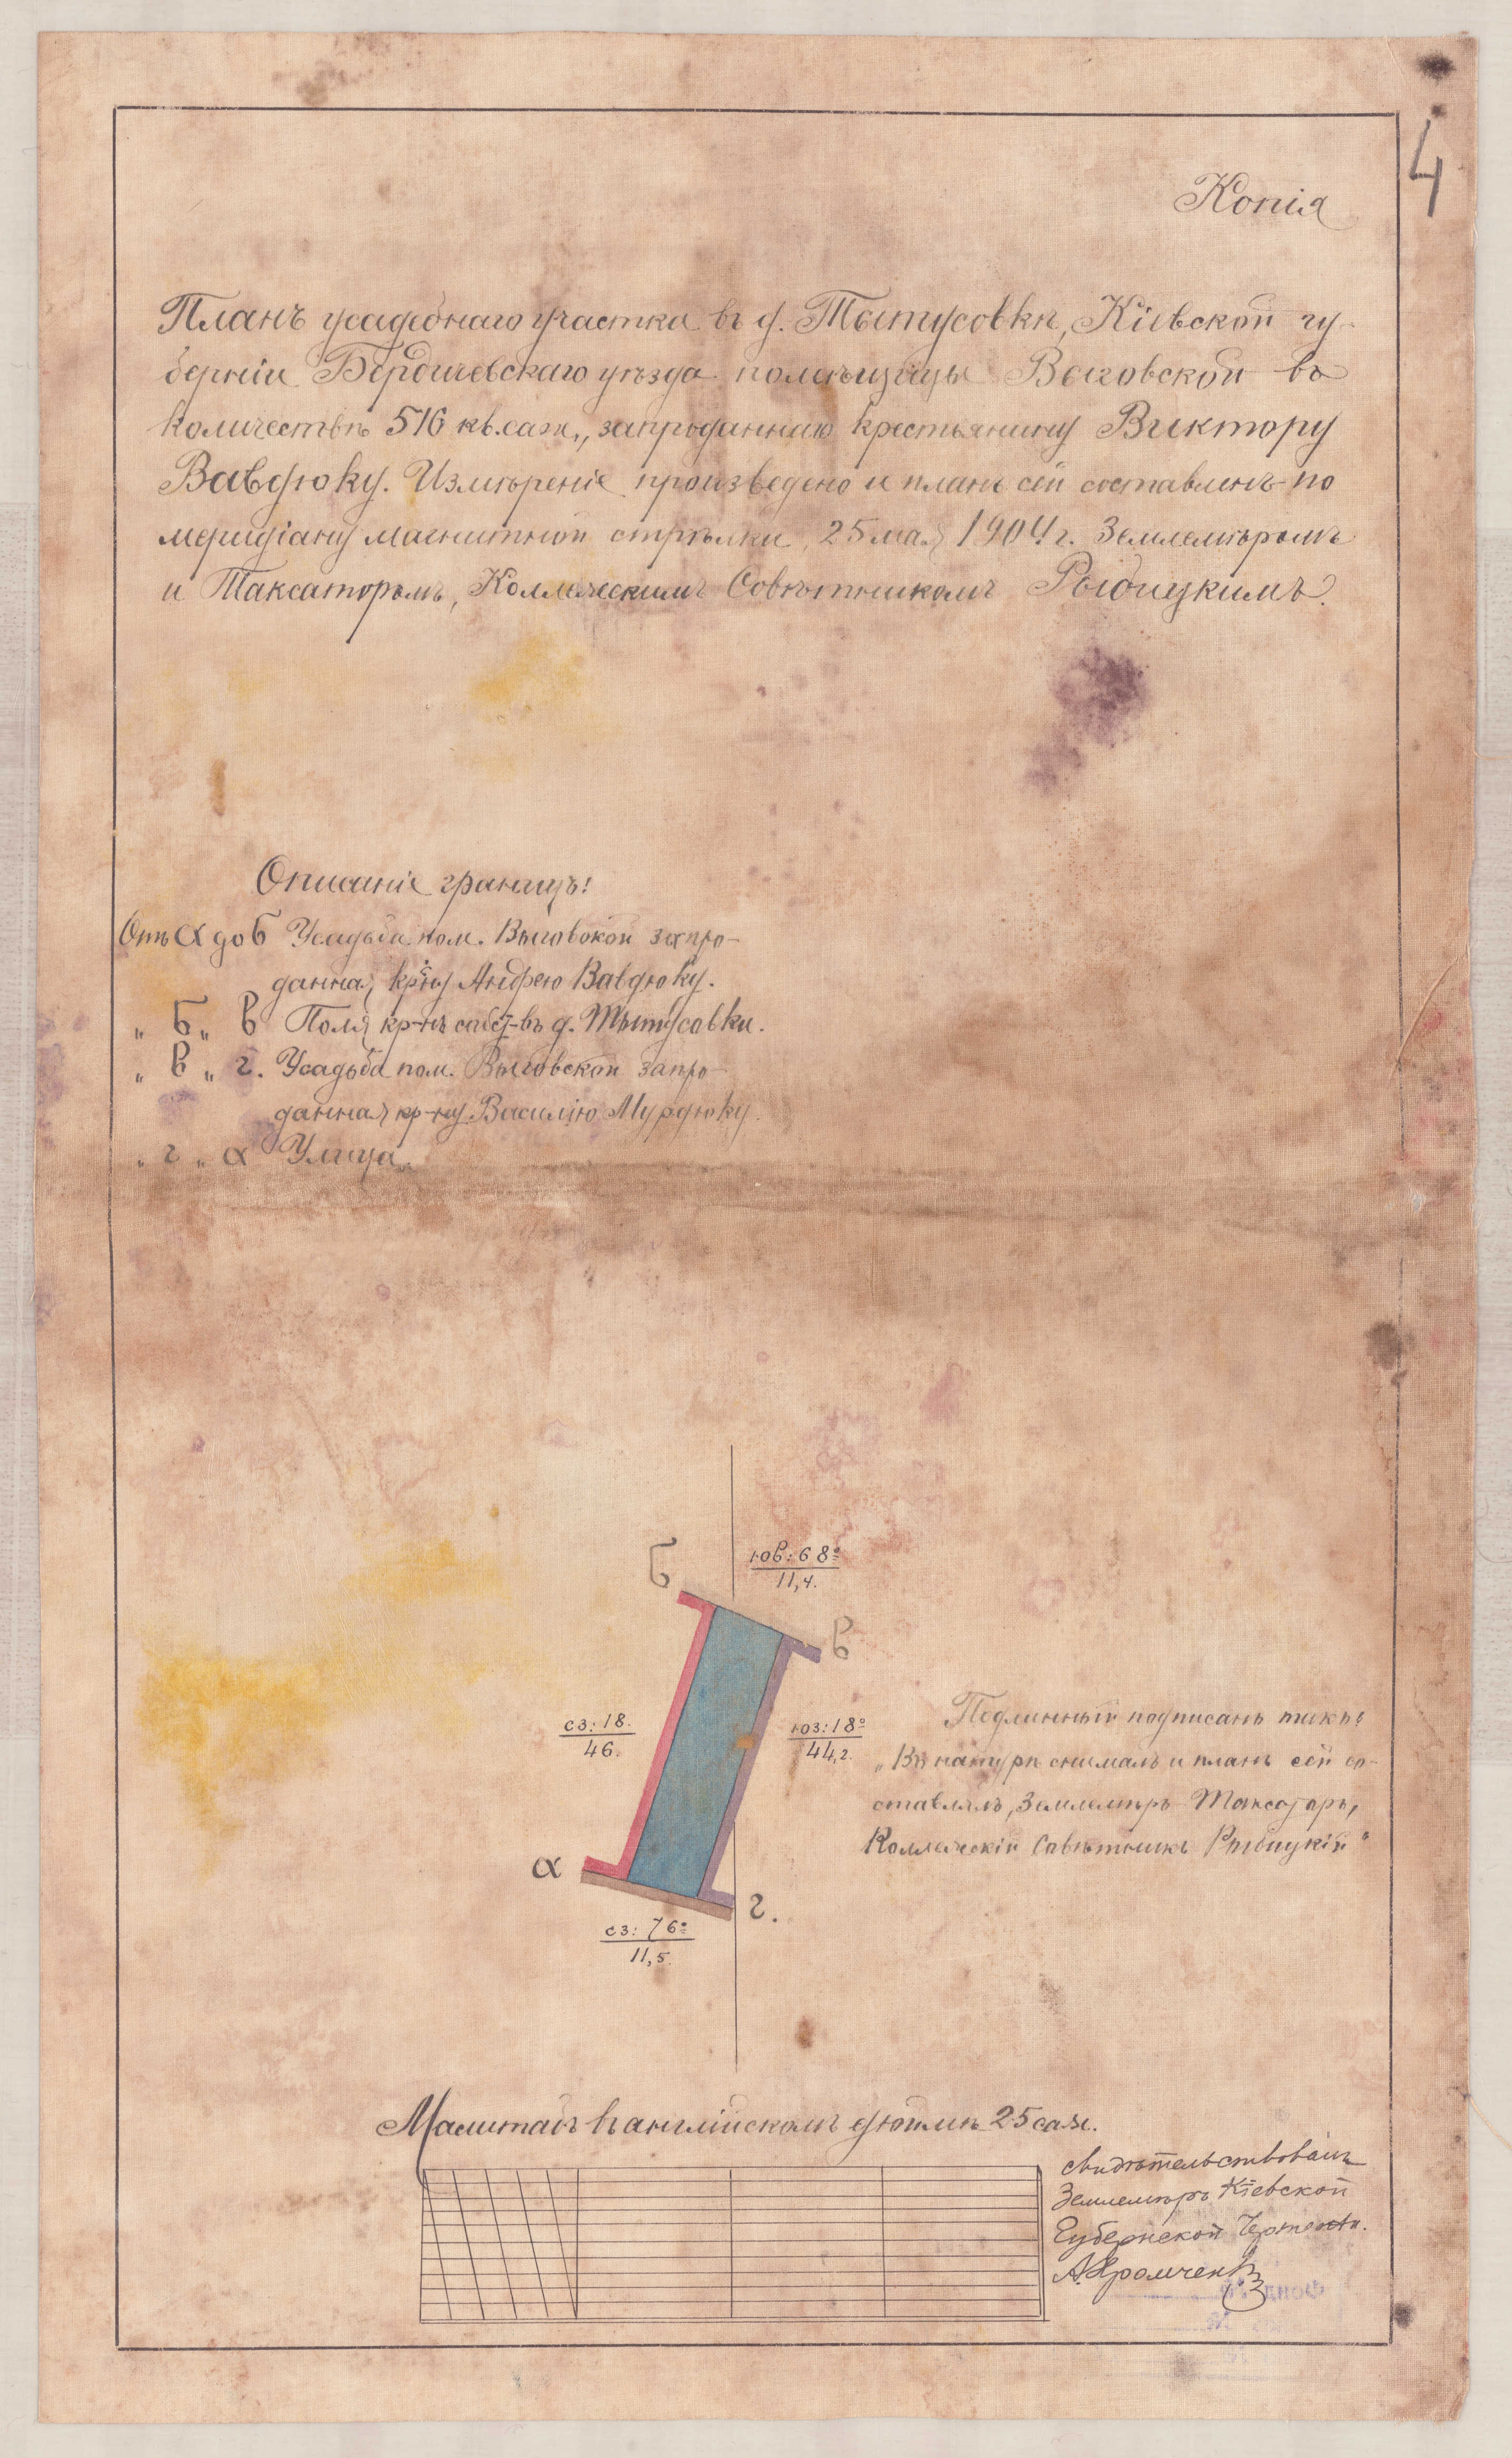 4
Копія
Планъ усадебнаго участка въ д. Тытусовкѣ, Кіевской гу-
берніи Бердичевскаго уѣзда помѣщицы Выговской въ
количествѣ 516 кв. саж., запроданнаго крестьянину Виктору
Вавдюку. Измѣреніе произведено и планъ сей составленъ по
меридіану магнитной стрѣлки 25 мая 1904 г. Землемѣромъ
и Таксаторомъ, Коллежскимъ Совѣтникомъ Рыбицкимъ.
Описаніе границъ:
Отъ а до Б Усадьба пом. Выговской запро-
данная кр-ну Андрею Вавдюку.
„ Б „ В Поля кр-нъ собст-въ д. Тытусовки.
„ В „ г. Усадьба пом. Выговской запро-
данная кр-ну Василію Мурдюку.
„ г „ а Улица.
Б
юв: 68°
11,4.
В
сз: 18.
46.
юз: 18°
44,2.
а
г.
сз: 76°
11,5.
Подлинный подписанъ такъ:
„Въ натурѣ снималъ и планъ сей со-
ставлялъ, Землемѣръ-Таксаторъ,
Коллежскій Совѣтникъ Рыбицкій"
Масштабъ въ англійскомъ дюймѣ 25 саж.
свидѣтельствовалъ
Землемѣръ Кіевской
Губернской Чертежн.
А. Хромченко
Фонд №